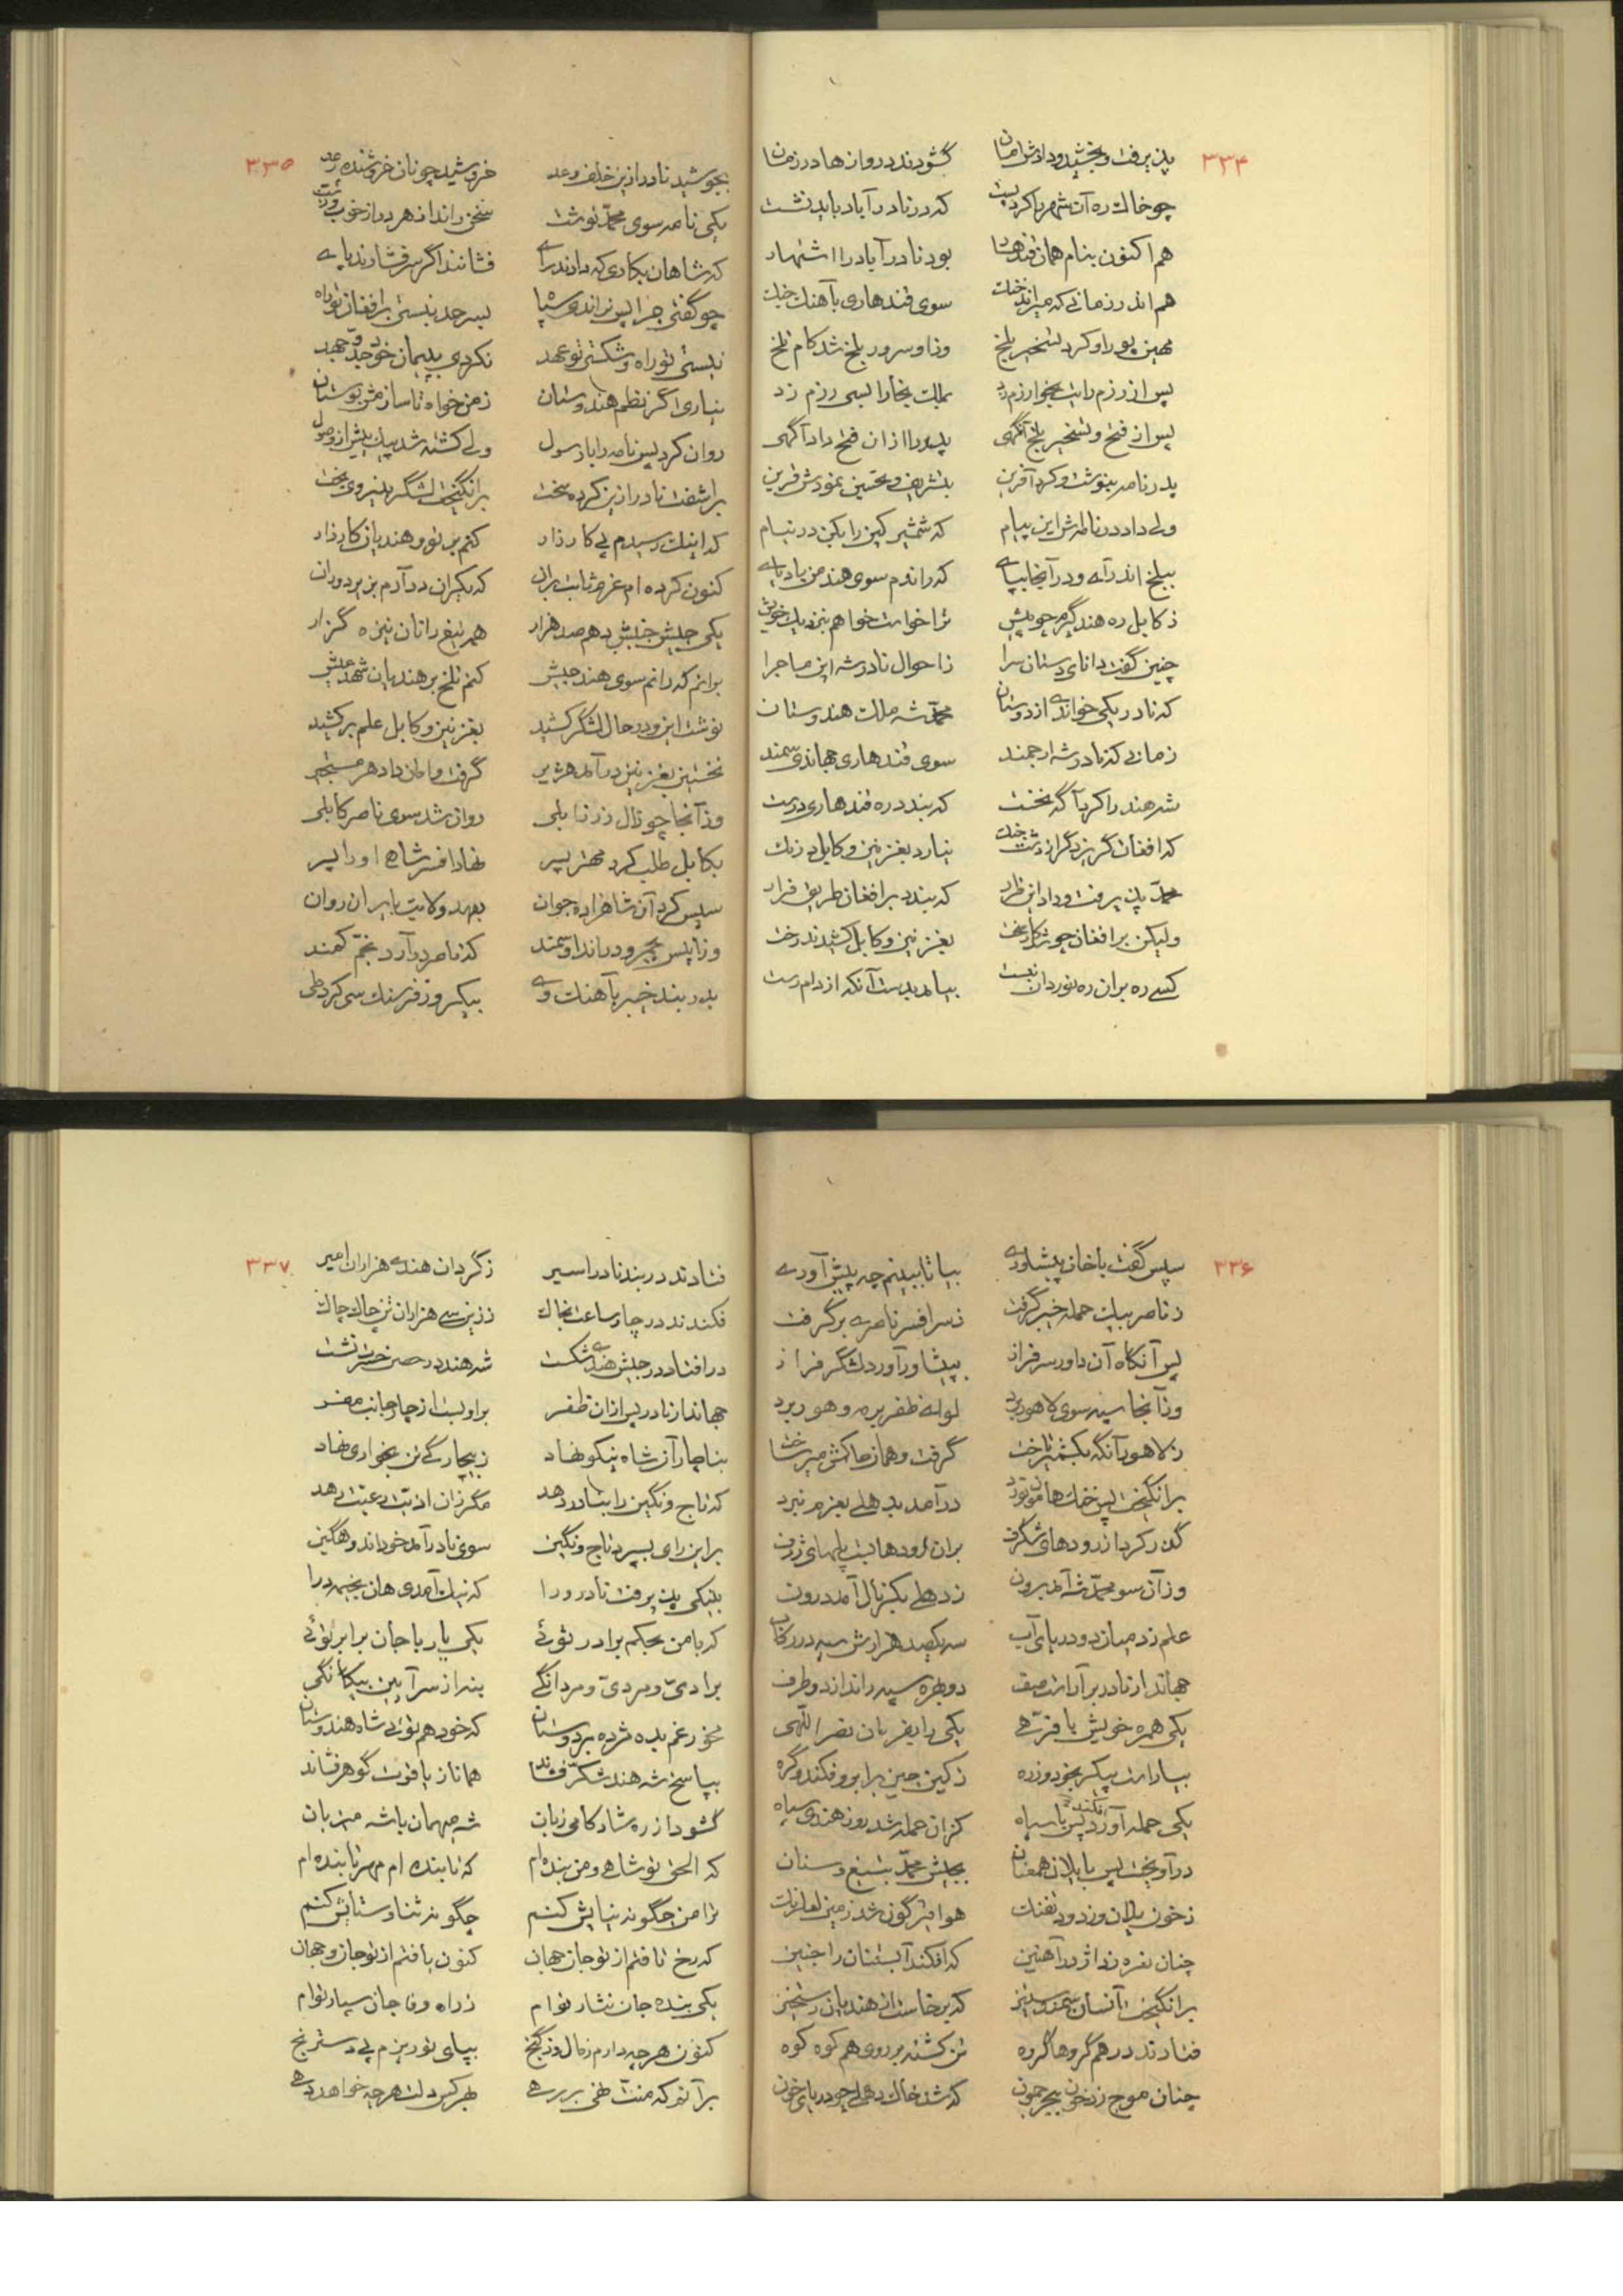 ۳۳۴
پذیرفت و بخشید و دادش امان گشودند دروازها در زمان
چو خاک ره آن شهر را کرد پست که در نادرآباد باید نشست
هم اکنون بنام همان قندهار بود نادرآباد را اشتهار
هم اندر زمانی که میراند خنک سوی قندهاری بآهنگ جنک
مهین پور او کرد تسخیر بلخ وز او سرور بلخ شد کام تلخ
پس از رزم رایت بخوارزم زد بملک بخارا بسی رزم زد
پس از فتح و تسخیر بلخ آنگهی پدر را از ان فتح داد آگهی
پدر نامه بنوشت و کرد آفرین بتشریف و تحسین نمودش قرین
ولی داد در نامه‌اش این پیام که شمشیر کین را بکن در نیام
ببلخ اندر آی و در آنجا بپای که راندم سوی هند من بادپای
ز کابل ره هند گیرم چو پیش ترا خواست خواهم بنزدیک خویش
چنین گفت دانای دستان سرا ز احوال نادرشه این ماجرا
که نادر یکی خواندی از دوستان محمد شه ملک هندوستان
زمانی که نادرشه ارجمند سوی قندهاری جهاندی سمند
شه هند را کرد آگه نخست که بندد ره قندهاری درست
که افغان گریزد گر از دشت جنک نیارد بغزنین و کابل درنک
محمد پذیرفت و داد این قرار که بندد بر افغان طریق فرار
ولیکن بر افغان چو شد کار سخت بغزنین و کابل کشیدند رخت
کسی ره بران ره نوردان نبست بیامد بدست آنکه از دام رست
۳۳۵
بجوشید نادر از این خلف وعد خروشید چونان خروشنده رعد
یکی نامه سوی محمد نوشت سخن راند از هر در از خوب و زشت
که شاهان بکاری که دادند رای فشانند اگر سر فشارند پای
چو گفتی چرا پس نراندی سپاه بسر حد نبستی بر افغان تو راه
نبستی تو راه و شکستی تو عهد نکردی بپیمان خود جد و جهد
نیاری اگر نظم هندوستان ز من خواه تا سازمش بوستان
روان کرد پس نامه را با رسول ولی کشته شد پیک پیش از وصول
برآشفت نادر از این کرده سخت برانگیخت لشگر بنیروی بخت
که اینک رسیدم پی کارزار کنم بر تو و هندیان کار زار
کنون کرده‌ام عزم ثابت بر ان که یکران در آرم بزیر دو ران
یکی جیش جنبش دهم صد هزار همه تیغ رانان نیزه گزار
برانم که رانم سوی هند جیش کنم تلخ بر هندیان شهد عیش
نوشت این و در حال لشگر کشید بغزنین و کابل علم برکشید
نخستین بغزنین درآمد هژیر گرفت و امان داد هر مستجیر
وز آنجا چو زال زر زابلی روان شد سوی ناصر کابلی
بکابل طلب کرد مهتر پسر نهاد افسر شاهی او را بسر
سپس کرد آن شاهزاده جوان بعهد ولایت بایران روان
وزان پس بجمرود راند او سمند که ناصر در آرد بخم کمند
بدربند خیبر بآهنک وی بیکروز فرسنک سی کرد طی
۳۳۶
سپس گفت با خان پیشاوری بیا تا ببینم چه پیش آوری
ز ناصر بیک حمله خیبر گرفت ز سر افسر ناصری برگرفت
پس آنکاه آن داور سرفراز بپیشاور آورد لشگر فراز
وز آنجا سپه سوی لاهور برد لوای ظفر بر مه و هور برد
ز لاهور آنگه بکشمیر تاخت گرفت و همان حاکمش میر ساخت
برانگیخت پس خنک هامون نورد درآمد بدهلی بعزم نبرد
گذر کرد از رودهای شگرف بران رودها بست پلهای ژرف
وز آن سو محمد شه آمد برون ز دهلی بکرنال آمد درون
علم زد میان دو دریای آب سه یکصد هزارش سپه در رکاب
جهاندار نادر برآراست صف دو بهره سپه راند از دو طرف
یکی همره خویش با فرهی یکی را بفرمان نصر اللهی
بیاراست پیکر بخود و زره ز کین چین بر ابرو فکند و گره
یکی حمله آورد پس با سپاه کزان حمله شد روز هندی سیاه
درآویخت پس با یلان همعنان بجیش محمد بتیغ و سنان
ز خون یلان وز دود تفنک هوا تیره گون شد زمین لعل رنک
چنان نعره زد اژدر آهنین که افکند آبستنان را جنین
برانگیخت آنسان سمند ستیز که برخاست از هندیان رستخیز
فتادند در هم گروها گروه تن کشته بر روی هم کوه کوه
چنان موج زد خون بجیحون که شد خاک دهلی چو دریای خون
۳۳۷
فتادند در بند نادر اسیر ز گردان هندی هزاران امیر
فکندند در چار ساعت بخاک ز زین سی هزاران تن چاک چاک
در افتاد در جیش هندی شکست شه هند در حصن حسرت نشست
جهاندار نادر پس از ان ظفر بر او بست از چار جانب مفر
بناچار آن شاه نیکو نهاد ز بیچارگی تن بخواری نهاد
که تاج و نگین را بنادر دهد مگر زان اذیت رعیت رهد
بر این رای بسپرد تاج و نگین سوی نادر آمد خود اندوهگین
بنیکی پذیرفت نادر ورا که نیک آمدی هان بخیمه درا
که با من بحکم برادر توئی یکی یار با جان برابر توئی
برادی و مردی و مردانگی بنه از سر آیین بیگانگی
مخور غم بده مژده بر دوستان که خود هم توئی شاه هندوستان
بپاسخ شه هند شکر فشاند همانا ز یاقوت گوهر فشاند
گشود از ره شادکامی زبان شه میهمان با شه میزبان
که الحق تو شاهی و من بنده‌ام که تابنده‌ام مهر تابنده‌ام
ترا من چگونه نیایش کنم چگونه ثنا و ستایش کنم
که رخ تافتم از تو جان جهان کنون یافتم از تو جان و جهان
یکی بنده جان نثار توام ز راه وفا جان سپار توام
کنون هر چه دارم ز مال و ز گنج بپای تو ریزم بی دسترنج
بر آنم که منت نهی بر رهی بهر کس دلت هر چه خواهد دهی